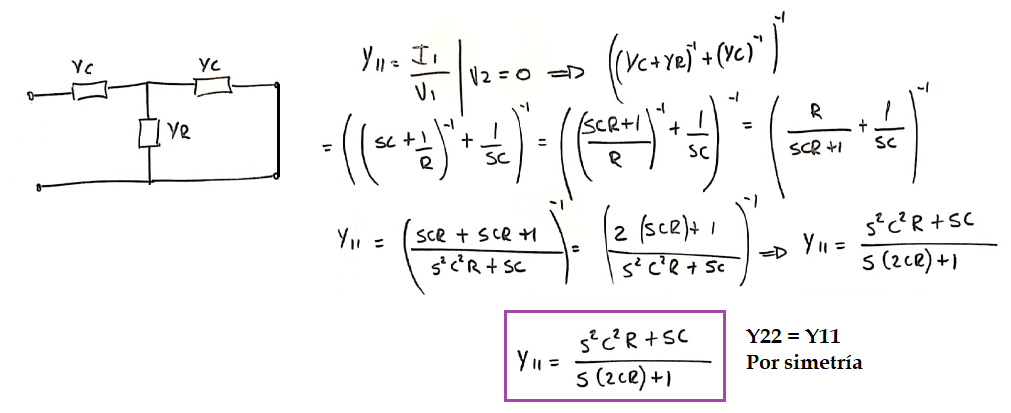 YC YC
YR
Y11 = I1/V1 | V2 = 0 ⇒ ((YC+YR)^-1 + (YC)^-1)^-1
= ((SC + 1/R)^-1 + 1/SC)^-1 = ((SCR+1/R)^-1 + 1/SC)^-1 = (R/SCR+1 + 1/SC)^-1
Y11 = (SCR + SCR +1/S²C²R + SC)^-1 = (2 (SCR)+ 1/S²C²R + SC)^-1 ⇒ Y11 = S²C²R + SC/S (2CR) +1
Y11 = S²C²R + SC/S (2CR) +1
Y22 = Y11
Por simetría